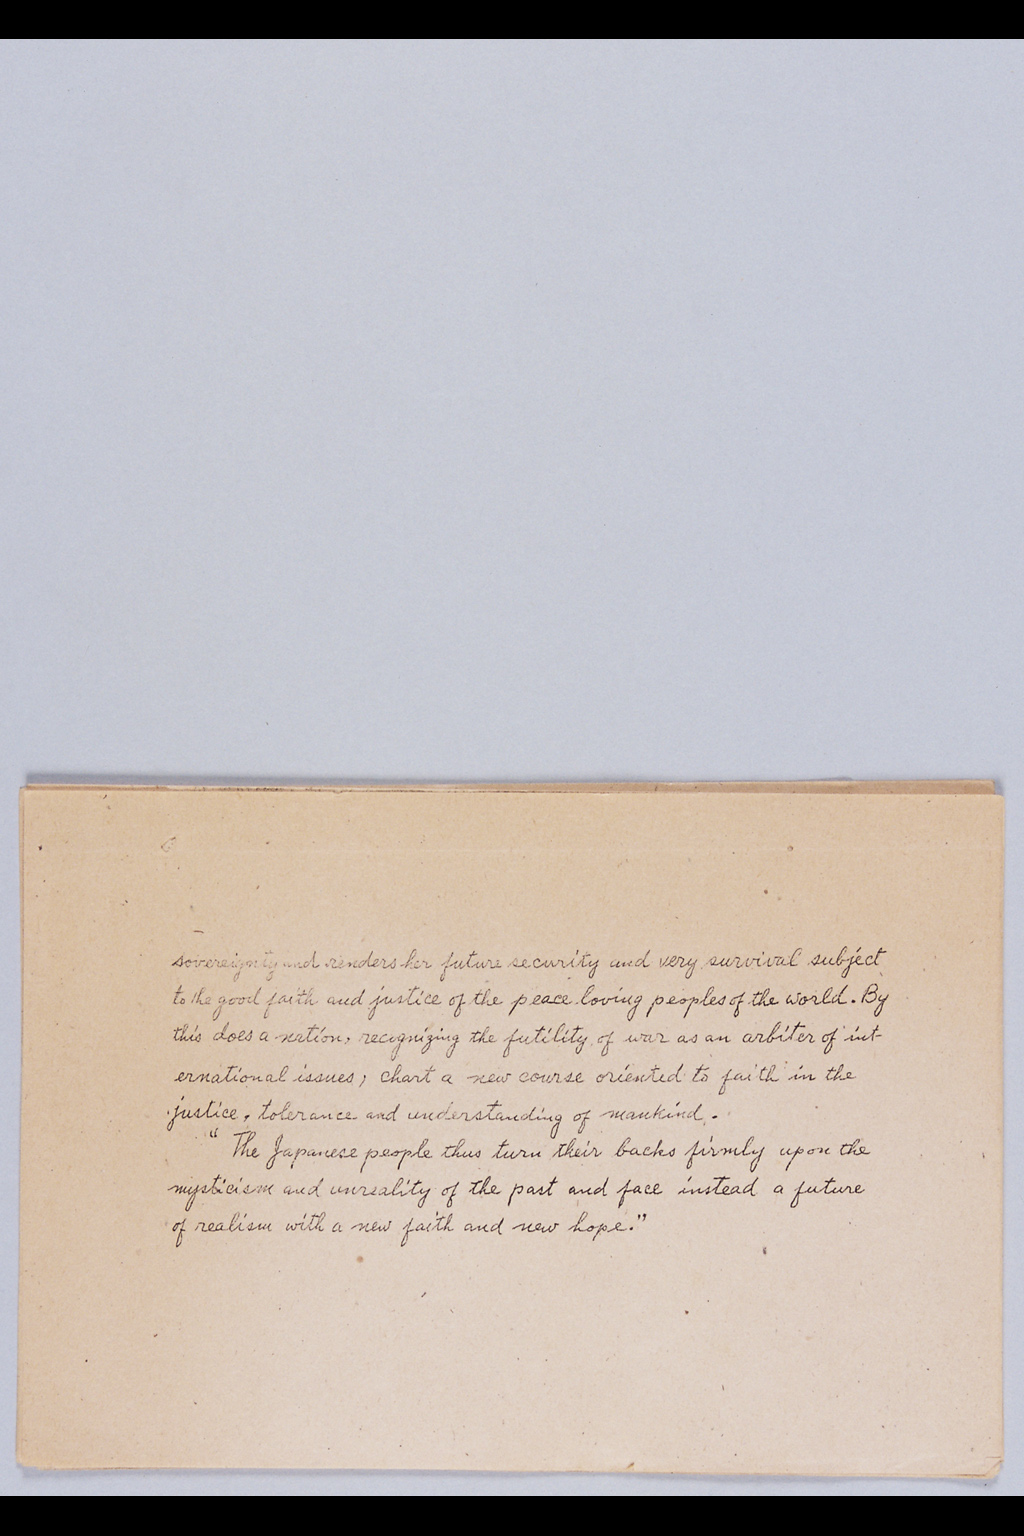 sovereignty and renders her future security and very survival subject
to the good faith and justice of the peace loving peoples of the world. By
this does a nation, recognizing the futility of war as an arbiter of int-
ernational issues, chart a new course oriented to faith in the
justice, tolerance and understanding of mankind.
" The Japanese people thus turn their backs firmly upon the
mysticism and unreality of the past and face instead a future
of realism with a new faith and new hope."